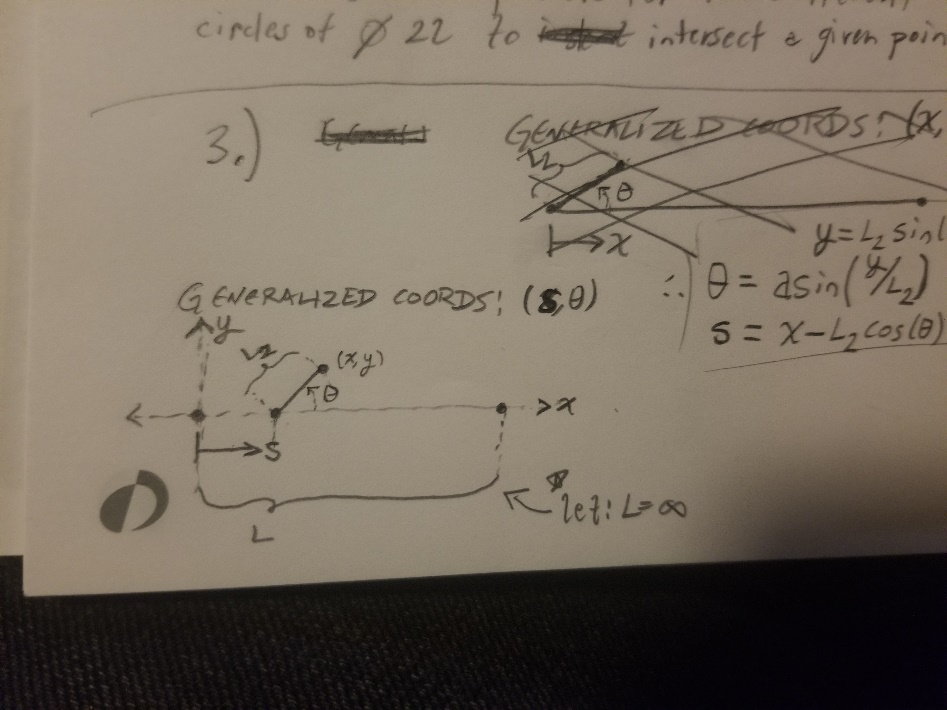 circles of Ø 22 to intersect a given poin
3.)
GENERALIZED COORDS: (x,
L2
θ
x
y = L2 sin(
∴ θ = asin(y/L2)
s = x - L2 cos(θ)
GENERALIZED COORDS: (s,θ)
y
L2
(x,y)
θ
x
s
let: L=∞
L